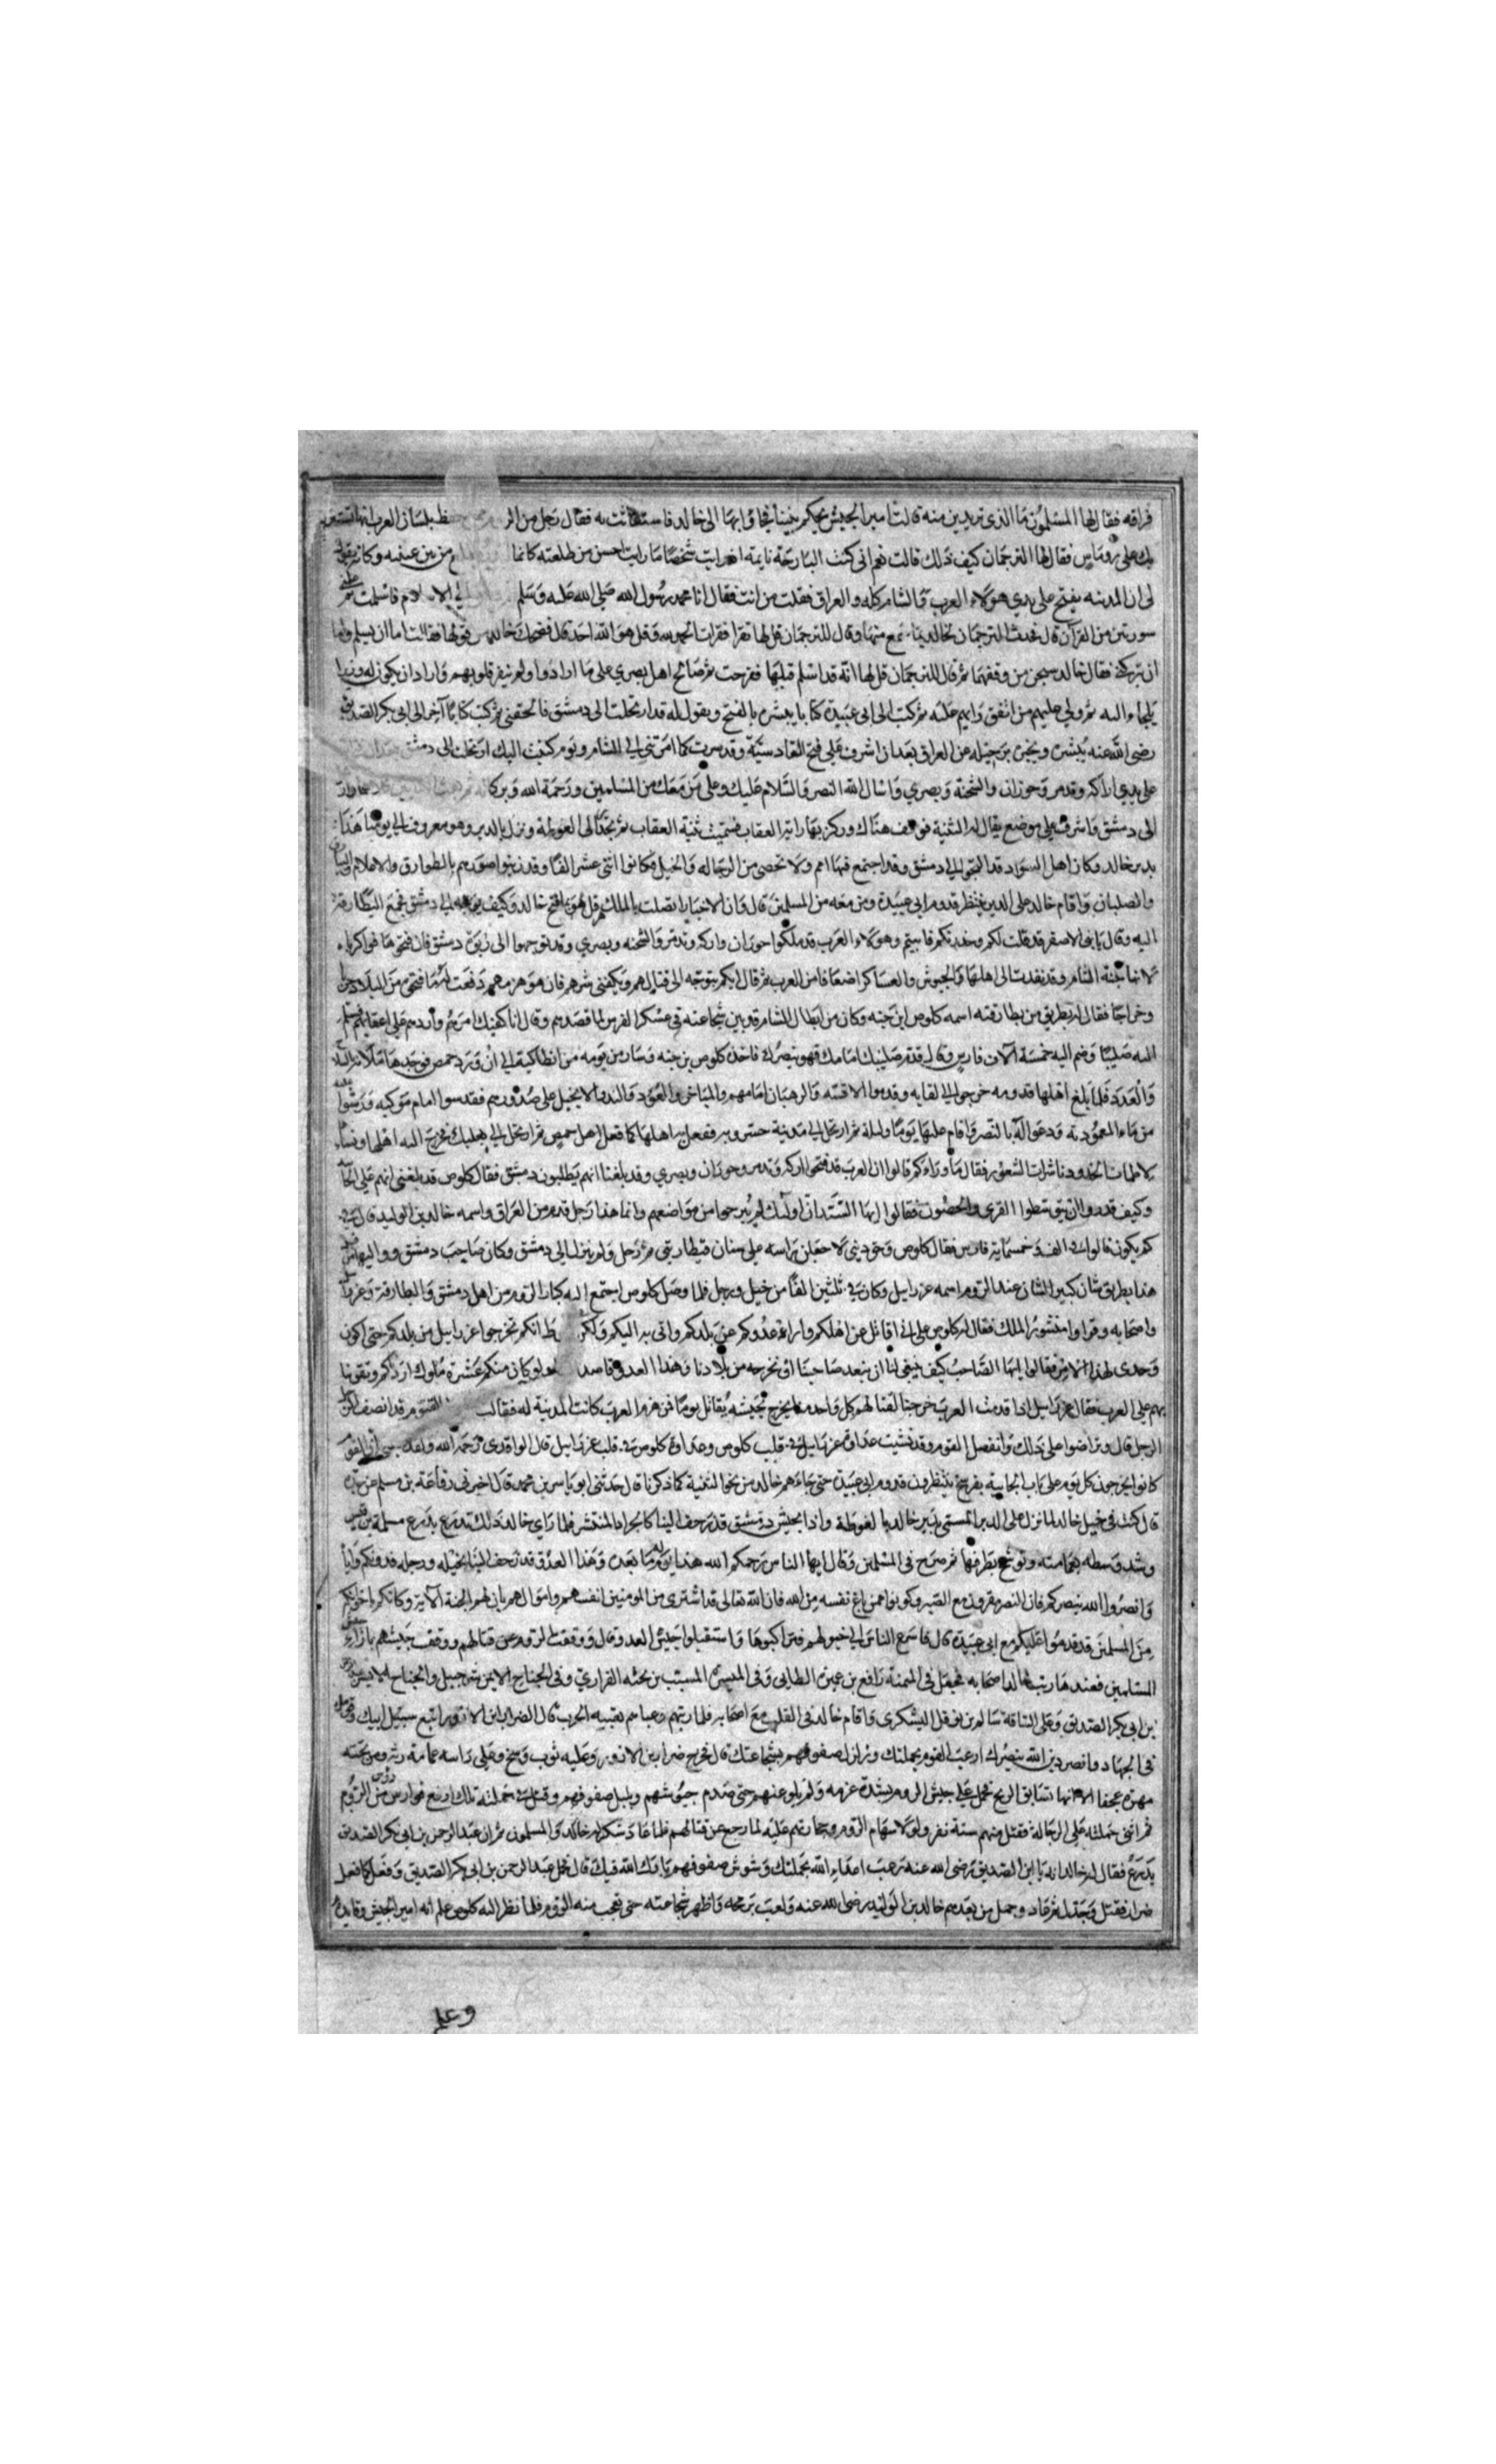 فراقه فقال لها المسلمون ما الذي تريدين منه قالت امير الجيش يحكم بيننا فجاؤا بها الى خالد فاستغاثت به فقال رجل من الر يحفظ بلسان العرب انها تستعين
بك على روماس فقال لها الترجمان كيف ذلك قالت نعم اني كنت البارحة نايمة اذ رايت شخصا ما رايت احسن من طلعته كانما من بين عينيه وكانه يقول
لي ان المدينه يفتح على يدي هولاء العرب والشام كله والعراق فقلت من انت فقال انا محمد رسول الله صلى الله عليه وسلم الى الاسلام فاسلمت ثم علمني
سورتين من القرآن قال فحدث الترجمان لخالد بما سمع منها وقال للترجمان قل لها تقرا فقرات الحمد لله وقل هو الله احد قال فضحك خالد من قولها فقالت اما ان يسلم واما
ان يتركني فقال خالد سبحن من وفقهما ثم قال للترجمان قل لها انه قد اسلم قبلها ففرحت ثم صالح اهل بصري على ما ارادوا ولم ينفر قلوبهم واراد ان يكون له وزيرا
يلجاء اليه ثم ولي عليهم من اتفق رايهم عليه ثم كتب الى ابي عبيدة كتابا يبشره بالفتح ويقول له قد ارتحلت الى دمشق فالحقني ثم كتب كتابا آخر الى ابي بكر الصديق
رضي الله عنه يبشره ويخبره برحيله عن العراق بعد ان اشرف على فتح القادسيّة وقد سرت كما امرتني الى الشام ويوم كتبت اليك ارتحلت الى دمشق
على يدي اراكه وتدمر وحوران والسخنة وبصري واسال الله النصر والسلام عليك وعلى من معك من المسلمين ورحمة الله وبركاته
الى دمشق واشرف على موضع يقال له الثنية فوقف هناك وركز بها راية العقاب فسميت ثنية العقاب ثم تجه الى الغوطة ونزل بالدير وهو معروف الى يومنا هذا
بدير خالد وكان اهل السواد قد التجوا الى دمشق وقد اجتمع فيها امم ولا تحصى من الرجاله والخيل فكانوا اثني عشر الفا وقد زينوا صورهم بالطوارق والاعلام والبيارق
والصلبان واقام خالد على الدير ينتظر قدوم ابي عبيدة ومن معه من المسلمين قال وان الاخبار اتصلت بالملك هرقل هو بما فتح خالد وكيف توجه الى دمشق فجمع البطارقة
اليه وقال يا بني الاصفر قد قلت لكم وحذرتكم فابيتم وهولاء العرب قد ملكوا حوران واركه وتدمر والسخنه وبصري وقد توجهوا الى ربوة دمشق فان فتحوها فواكرباه
لانها جنة الشام وقد نفذت الى اهلها الجيوش والعساكر اضعافا من العرب ثم قال ايكم يتوجه الى قتالهم ويكفيني شرهم فان هو هزمهم دفعت له ما فتحوه من البلاد
وخراجها فقال له بطريق من بطارقته اسمه كلوص ابن حنه وكان من ابطال الشام قد بين شجاعته في عسكر الفرس لما قصدهم وقال انا اكفيك امرهم واردهم على اعقابهم فسلم
اليه صليبا وضم اليه خمسة آلاف فارس وقال قدم صليبك امامك فهو ينصرك فاخذه كلوص بن حنه وسار من يومه من انطاكية الى ان ورد حمص فوجدها ملآنة بالآلة
والعدد فلما بلغ اهلها قدومه خرجوا الى لقايه وقدموا الاقسه والرهبان امامهم والمباخر والعود والند والانجيل على صدورهم فقدسوا امام موكبه ورشوا عليه
من ماء المعموديه ودعوا له بالنصر واقام عليها يوما وليلة ثم ارتحل الى مدينة جسر وبر ففعل به اهلها كما فعل اهل حمص ثم ارتحل الى بعلبك فخرج اليه اهلها ونساؤها
لاطمات الخدود ناشرات الشعور فقال ما وراءكم قالوا ان العرب قد فتحوا اركه وتدمر وحوران وبصري وقد بلغنا انهم يطلبون دمشق فقال كلوص قد بلغني انهم على الجابية
وكيف قدروا ان يتوسطوا القرى والحصون فقالوا ايها السيد ان اولئك لم يبرحوا من مواضعهم وانما هذا رجل قدم من العراق واسمه خالد بن الوليد قال في
كم يكون قالوا في الف وخمسماية فارس فقال كلوص وحق ديني لا جعلن براسه على سنان قنطاريتي ثم رحل ولم ينزل الى دمشق وكان صاحب دمشق وواليها من قبل
هذا بطريق شان كبير الشان عند الروم اسمه عزرابيل وكان في ثلثين الفا من خيل ورجل فلما وصل كلوص اجتمع اليه كبار الروم من اهل دمشق والبطارقة وعزرابيل
واصحابه وقراوا منشور الملك فقال لهم كلوص على اني اقاتل عن اهلكم وارد عدوكم عن بلدكم واتى به اليكم ولكن بشرط انكم تخرجوا عزرابيل من بلدكم حتى اكون
وحدي لهذا الامر فقالوا ايها الصاحب كيف ينبغي لنا ان نبعد صاحبنا او نخرجه من بلادنا وهذا العدو قاصدا ولو كان منكم عشرة ملوك اردناكم وتقوينا
بهم على العرب فقال عزرابيل اذا قدمت العرب خرجنا القنا لهم كل واحد منا يخرج بجيشه يقاتل يوما فمن هزم العرب كانت المدينة له فقالت القوم قد انصف لك
الرجل قال وتراضوا على ذلك وانفصل القوم وقد نشبت عداوة عزرابيل في قلب كلوص وعداوة كلوص في قلب عزرابيل قال الواقدي رحمه الله ولقد بلغني ان القوم
كانوا يخرجون كل يوم على باب الجابية بفرسخ ينتظرون قدوم ابي عبيدة حتى جاءهم خالد من نحو الثنية كما ذكرنا قال حدثني ابو ياسر بن محمد قال اخبرني رفاعة بن مسلم عن جده
قال كنت في خيل خالد لما نزل على الدير المسمى بدير خالد بالغوطة واذا بجيش دمشق قد زحف الينا كالجراد المنتشر فلما راي خالد ذلك تدرع بدرع مسلمة بن قيس
وشد وسطه بعمامته وتوشح بطرفها ثم صرخ في المسلمين وقال ايها الناس رحمكم الله هذا يوم له ما بعده وهذا العدو قد زحف الينا بخيله ورجله فدونكم واياه
وانصروا الله ينصركم فان النصر مقرون مع الصبر وكونوا ممن باع نفسه من الله فان الله تعالى قد اشترى من المومنين انفسهم واموالهم بان لهم الجنة الآية وكانكم باخوانكم
من المسلمين قد قدموا عليكم مع ابي عبيدة قال فاسرع الناس الى خيولهم فركبوها واستقبلوا جيش العدو قال ووقفت الروم عن قتالهم ووقف جيشهم بازاء جيش
المسلمين فعندها رتب خالد اصحابه فجعل في الميمنة رافع بن عميرة الطايي وفي الميسرة المسيب بن نجبه الفزاري وفي الجناح الايمن شرحبيل والجناح الايسر عبد الرحمن
بن ابي بكر الصديق وعلى الساقة سالم بن نوفل اليشكري واقام خالد في القلب مع اصحابه فلما رتبهم وعباهم تعبية الحرب قال لضرار ابن الازور اتبع سبيل ابيك وقومك
في الجهاد وانصر دين الله ينصرك ارعب القوم بحملتك وزلزل صفوفهم بشجاعتك قال فخرج ضرار بن الازور وعليه ثوب وسخ وعلى راسه عمامة رثه ومن تحته
مهرة عجفا الا انها تسابق الريح فحمل على جيش الروم بشدة عزمه ولم يلو عنهم حتى صدم جيوشهم وبلبل صفوفهم وقتل في حملته تلك اربع فوارس من الروم
ثم اثنى حملته على الرجالة فقتل منهم ستة نفر ولولا سهام الروم وحجارتهم عليه لما رجع عن قتالهم فلما عاد شكر له خالد والمسلمون ثم ان عبد الرحمن بن ابي بكر الصديق
بدرع فقال له خالد انه يا ابن الصديق رضي الله عنه ترعب اعداء الله بحملتك وشوش صفوفهم بارك الله فيك قال فحمل عبد الرحمن بن ابي بكر الصديق وفعل كما فعل
ضرار فقتل وجندل ثم عاد وحمل من بعدهم خالد بن الوليد رضي الله عنه ولعب برمحه واظهر شجاعته حتى تعجب منه الروم فلما نظر اليه كلوص علم انه امير الجيش وقايده
وعلم